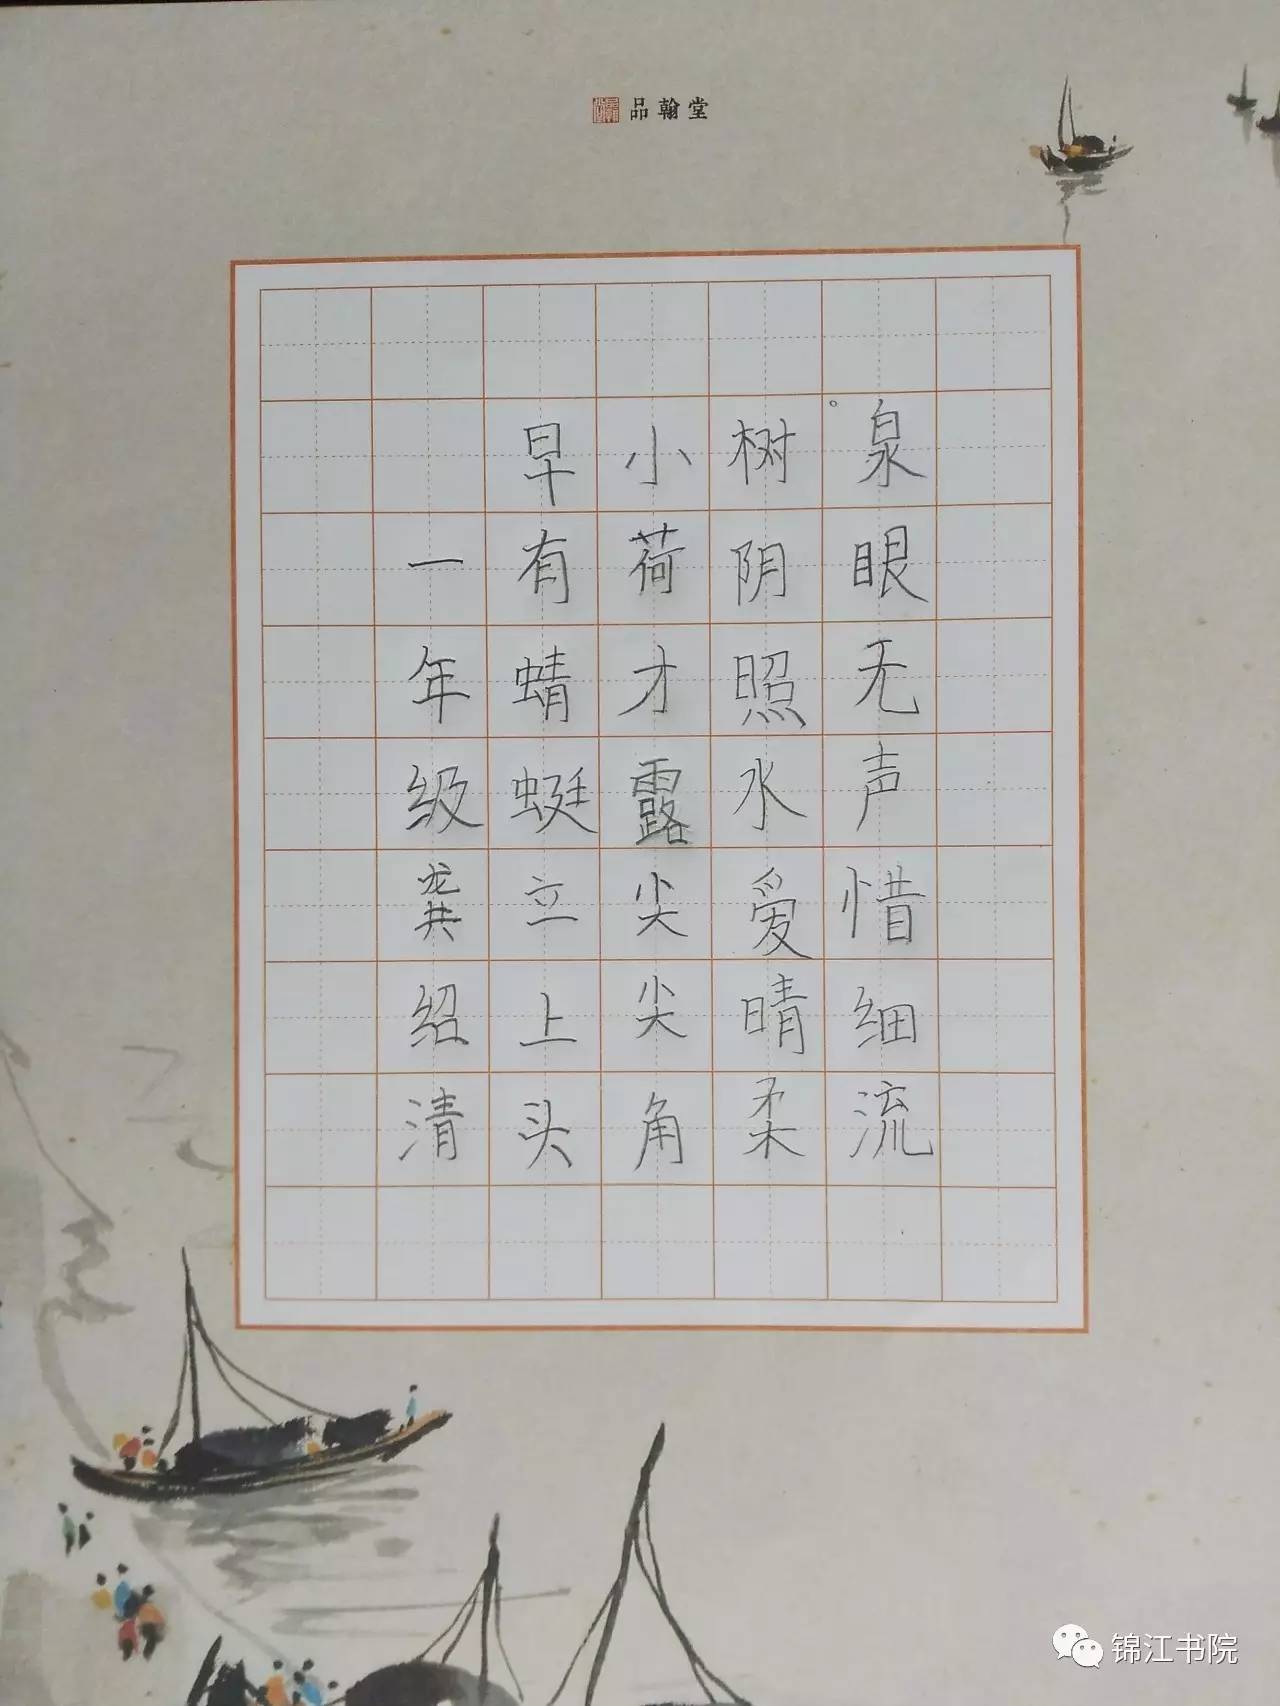 品翰堂
泉眼无声惜细流
树阴照水爱晴柔
小荷才露尖尖角
早有蜻蜓立上头
一年级龚绍清
锦江书院